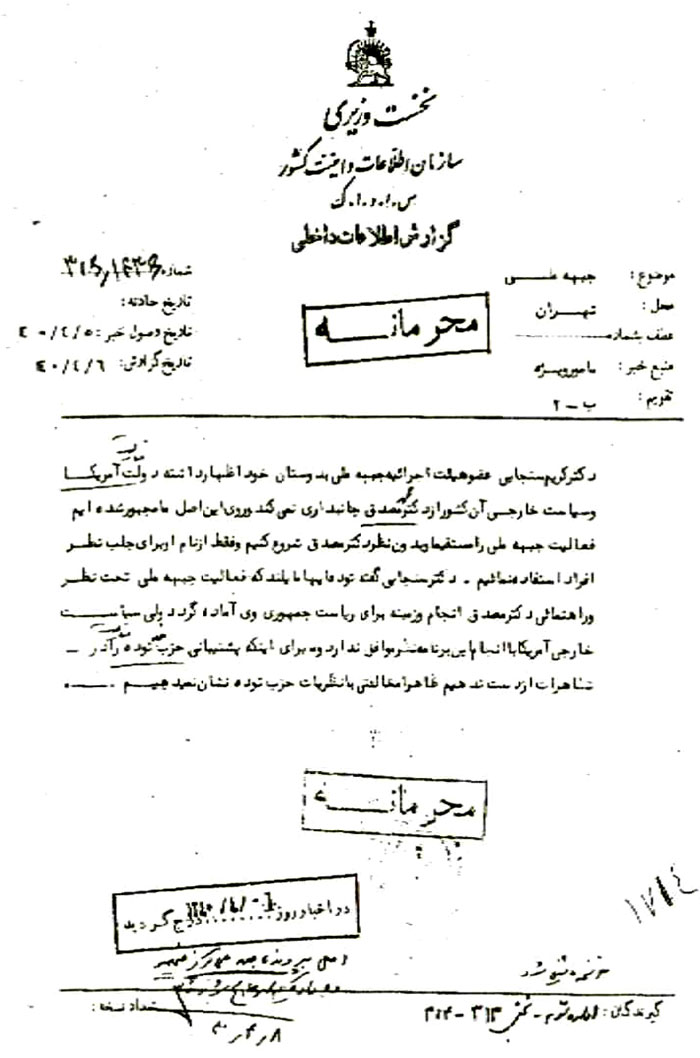 نخست وزیری
سازمان اطلاعات و امنیت کشور
س.ا.و.ا.ک
گزارش اطلاعات داخلی
موضوع: جبهه ملی
محل: تهران
عطف بشماره
منبع خبر: مامور ویژه
تقویم: ب-۲
شماره:
تاریخ حادثه:
تاریخ وصول خبر: ۴۰/۴/۵
تاریخ گزارش: ۴۰/۴/۶
محرمانه
دکتر کریم سنجابی عضو هیئت اجرائیه جبهه ملی بدوستان خود اظهار داشته دولت آمریکا
و سیاست خارجی آن کشور از دکتر مصدق جانبداری نمی کند و روی این اصل ما مجبور شده ایم
فعالیت جبهه ملی را مستقیما و بدون نظر دکتر مصدق شروع کنیم و فقط از نام او برای جلب نظر
افراد استفاده نمائیم - دکتر سنجابی گفته توده ایها مایلند که فعالیت جبهه ملی تحت نظر
و راهنمائی دکتر مصدق انجام و زمینه برای ریاست جمهوری وی آماده گردد ولی سیاست
خارجی آمریکا با انجام این برنامه نظر موافق ندارد و ما برای اینکه پشتیبانی حزب توده را در -
تظاهرات از دست ندهیم ظاهرا مخالفتی با نظریات حزب توده نشان نمیدهیم -
محرمانه
در اخبار روز درج گردید
۱۷۸۴
گیرندگان:
تعداد نسخه: